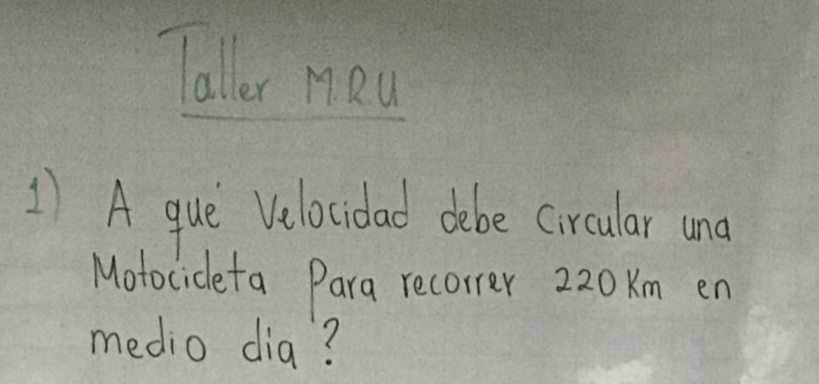 Taller M.R.U
1) A qué Velocidad debe Circular una
Motocicleta Para recorrer 220 Km en
medio dia ?